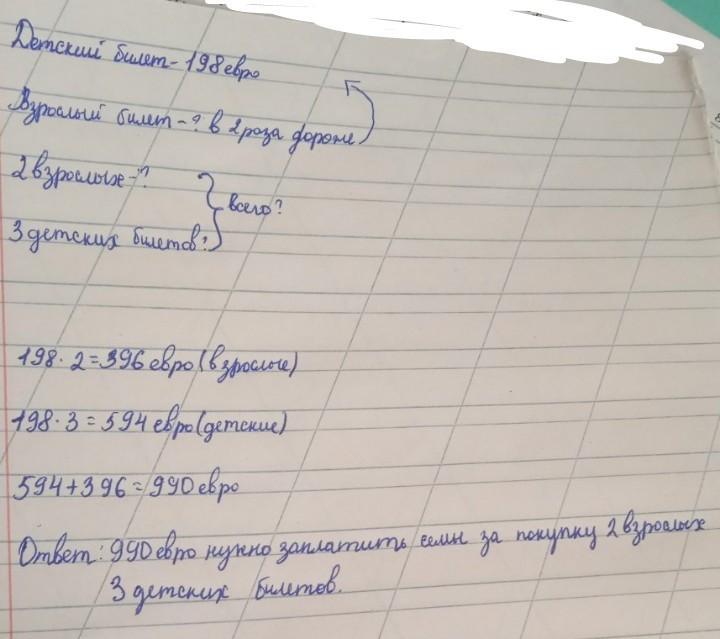 Детский билет - 198 евро
Взрослый билет - ? в 2 роза дороже
2 взрослых - ?
всего?
3 детских билетов ?
198 · 2 = 396 евро (взрослые)
198 · 3 = 594 евро (детские)
594 + 396 = 990 евро
Ответ: 990 евро нужно заплатить семьи за покупку 2 взрослых
3 детских билетов.